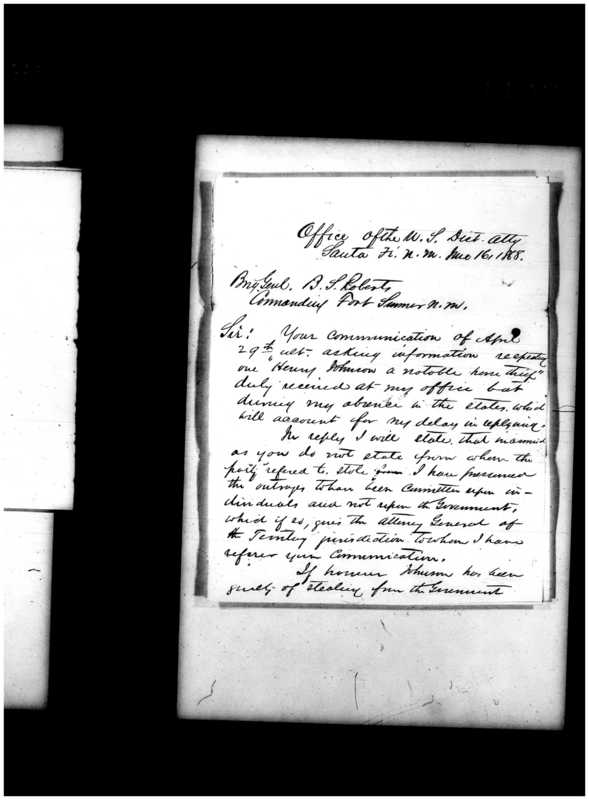 Office of the U. S. Dist. Atty
Santa Fé. N. M. 16, 1868.
Brig Genl. B. S. Roberts
Commanding Fort Sumner N. M.
Sir: Your communication of April
29th ult. asking information respecting
one Henry Johnson a notable horse thief"
duly received at my office but
during my absence in the states. which
will account for my delay in replying.
In reply I will state that inasmuch
as you do not state from whom the
party refered to stole I have presumed
the outrages to have been committed upon in-
dividuals and not upon the Government,
which if so, gives the Attorney General of
the Territory jurisdiction to whom I have
refered your communication.
If however Johnson has been
guilty of stealing from the Government